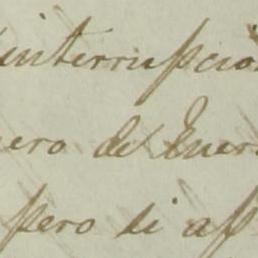 interrupcion
nero de Enero
pero si ap